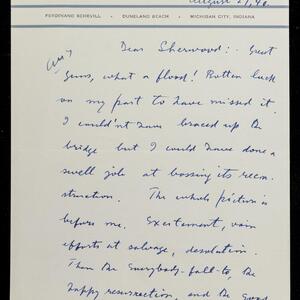 August 27, 40.
FERDINAND SCHEVILL · DUNELAND BEACH · MICHIGAN CITY, INDIANA
Dear Sherwood: - Great
Guns, what a flood! Rotten luck
on my part to have missed it.
I could'nt have braced up the
bridge but I could have done a
swell job at bossing its recon-
struction. The whole picture is
before me. Excitement, vain
efforts at salvage, desolation.
Then the everybody-fall-to, the
happy resurrection, and the good